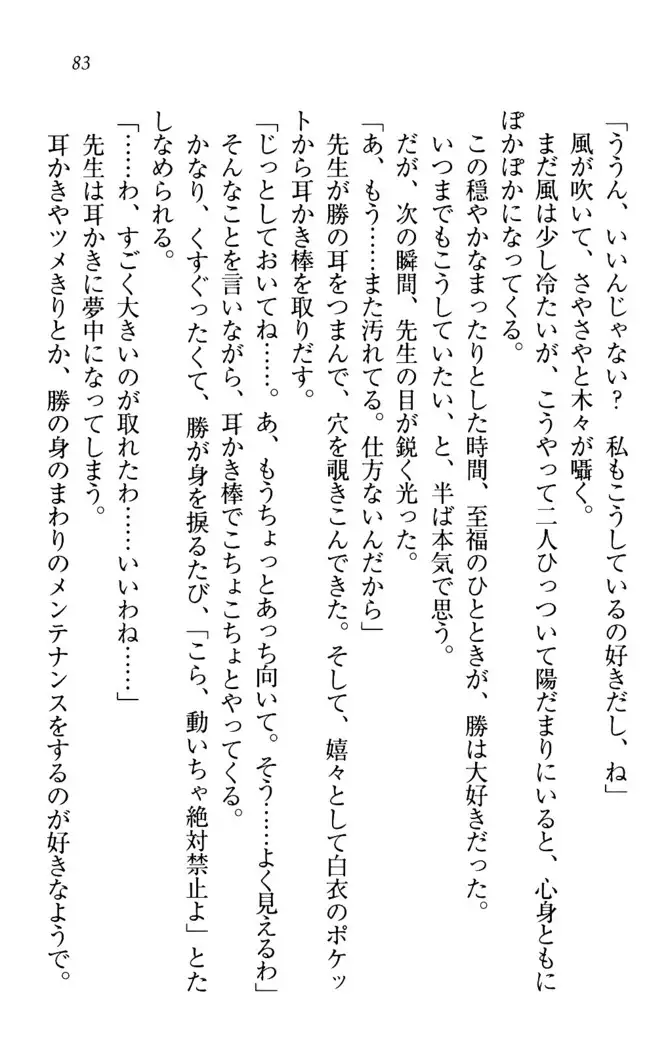 83
「ううん、いいんじゃない？　私もこうしているの好きだし、ね」
風が吹いて、さやさやと木々が囁く。
まだ風は少し冷たいが、こうやって二人ひっついて陽だまりにいると、心身ともに
ぽかぽかになってくる。
この穏やかなまったりとした時間、至福のひとときが、勝は大好きだった。
いつまでもこうしていたい、と、半ば本気で思う。
だが、次の瞬間、先生の目が鋭く光った。
「あ、もう……また汚れてる。仕方ないんだから」
先生が勝の耳をつまんで、穴を覗きこんできた。そして、嬉々として白衣のポケッ
トから耳かき棒を取りだす。
「じっとしておいてね……。あ、もうちょっとあっち向いて。そう……よく見えるわ」
そんなことを言いながら、耳かき棒でこちょこちょとやってくる。
かなり、くすぐったくて、勝が身を捩るたび、「こら、動いちゃ絶対禁止よ」とた
しなめられる。
「……わ、すごく大きいのが取れたわ……いいわね……」
先生は耳かきに夢中になってしまう。
耳かきやツメきりとか、勝の身のまわりのメンテナンスをするのが好きなようで。